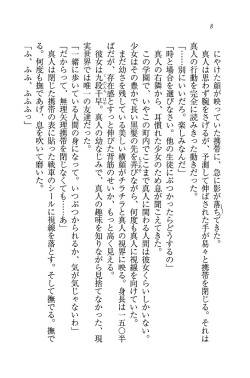 8
にやけた顔が映っていた携帯に、急に影が落ちてきた。
真人は思わず腕をさげるが、予期して伸ばされた手が易々と携帯を閉じる。それは
真人の行動を完全に読みきった動きだった。
「……別にいいだろ。楽しみなんだ」
「時と場合を選びなさい。他の生徒にぶつかったらどうするの」
真人の右隣から、耳慣れた少女のため息が聞こえた。
この学園で、いやこの町内でここまで真人に関わる人間は彼女くらいしかいない。
少女はその豊かで長い黒髪を手で弄びながら、何度も真人に視線を向けていた。
まだ幼さを残している美しい横顔がチラチラと真人の視界に映る。身長は一五〇半
ばだが、存在感とピンと伸びた背筋のせいか、もっと高く見える。
彼女は九段千早。真人の幼なじみで、真人の趣味を知りながら見捨てなかった、現
実世界では唯一の友達だった。
「一緒に歩いている人間の身になって。いつぶつかられるか、気が気じゃないわ」
「だからって、無理矢理携帯を閉じなくても……あ」
真人は閉じた携帯の表に貼った戦車のシールに視線を落とす。そして撫でる。撫で
る。何度も撫であげ、息を吹いて磨いた。
「ふ、ふふ、ふふふっ」